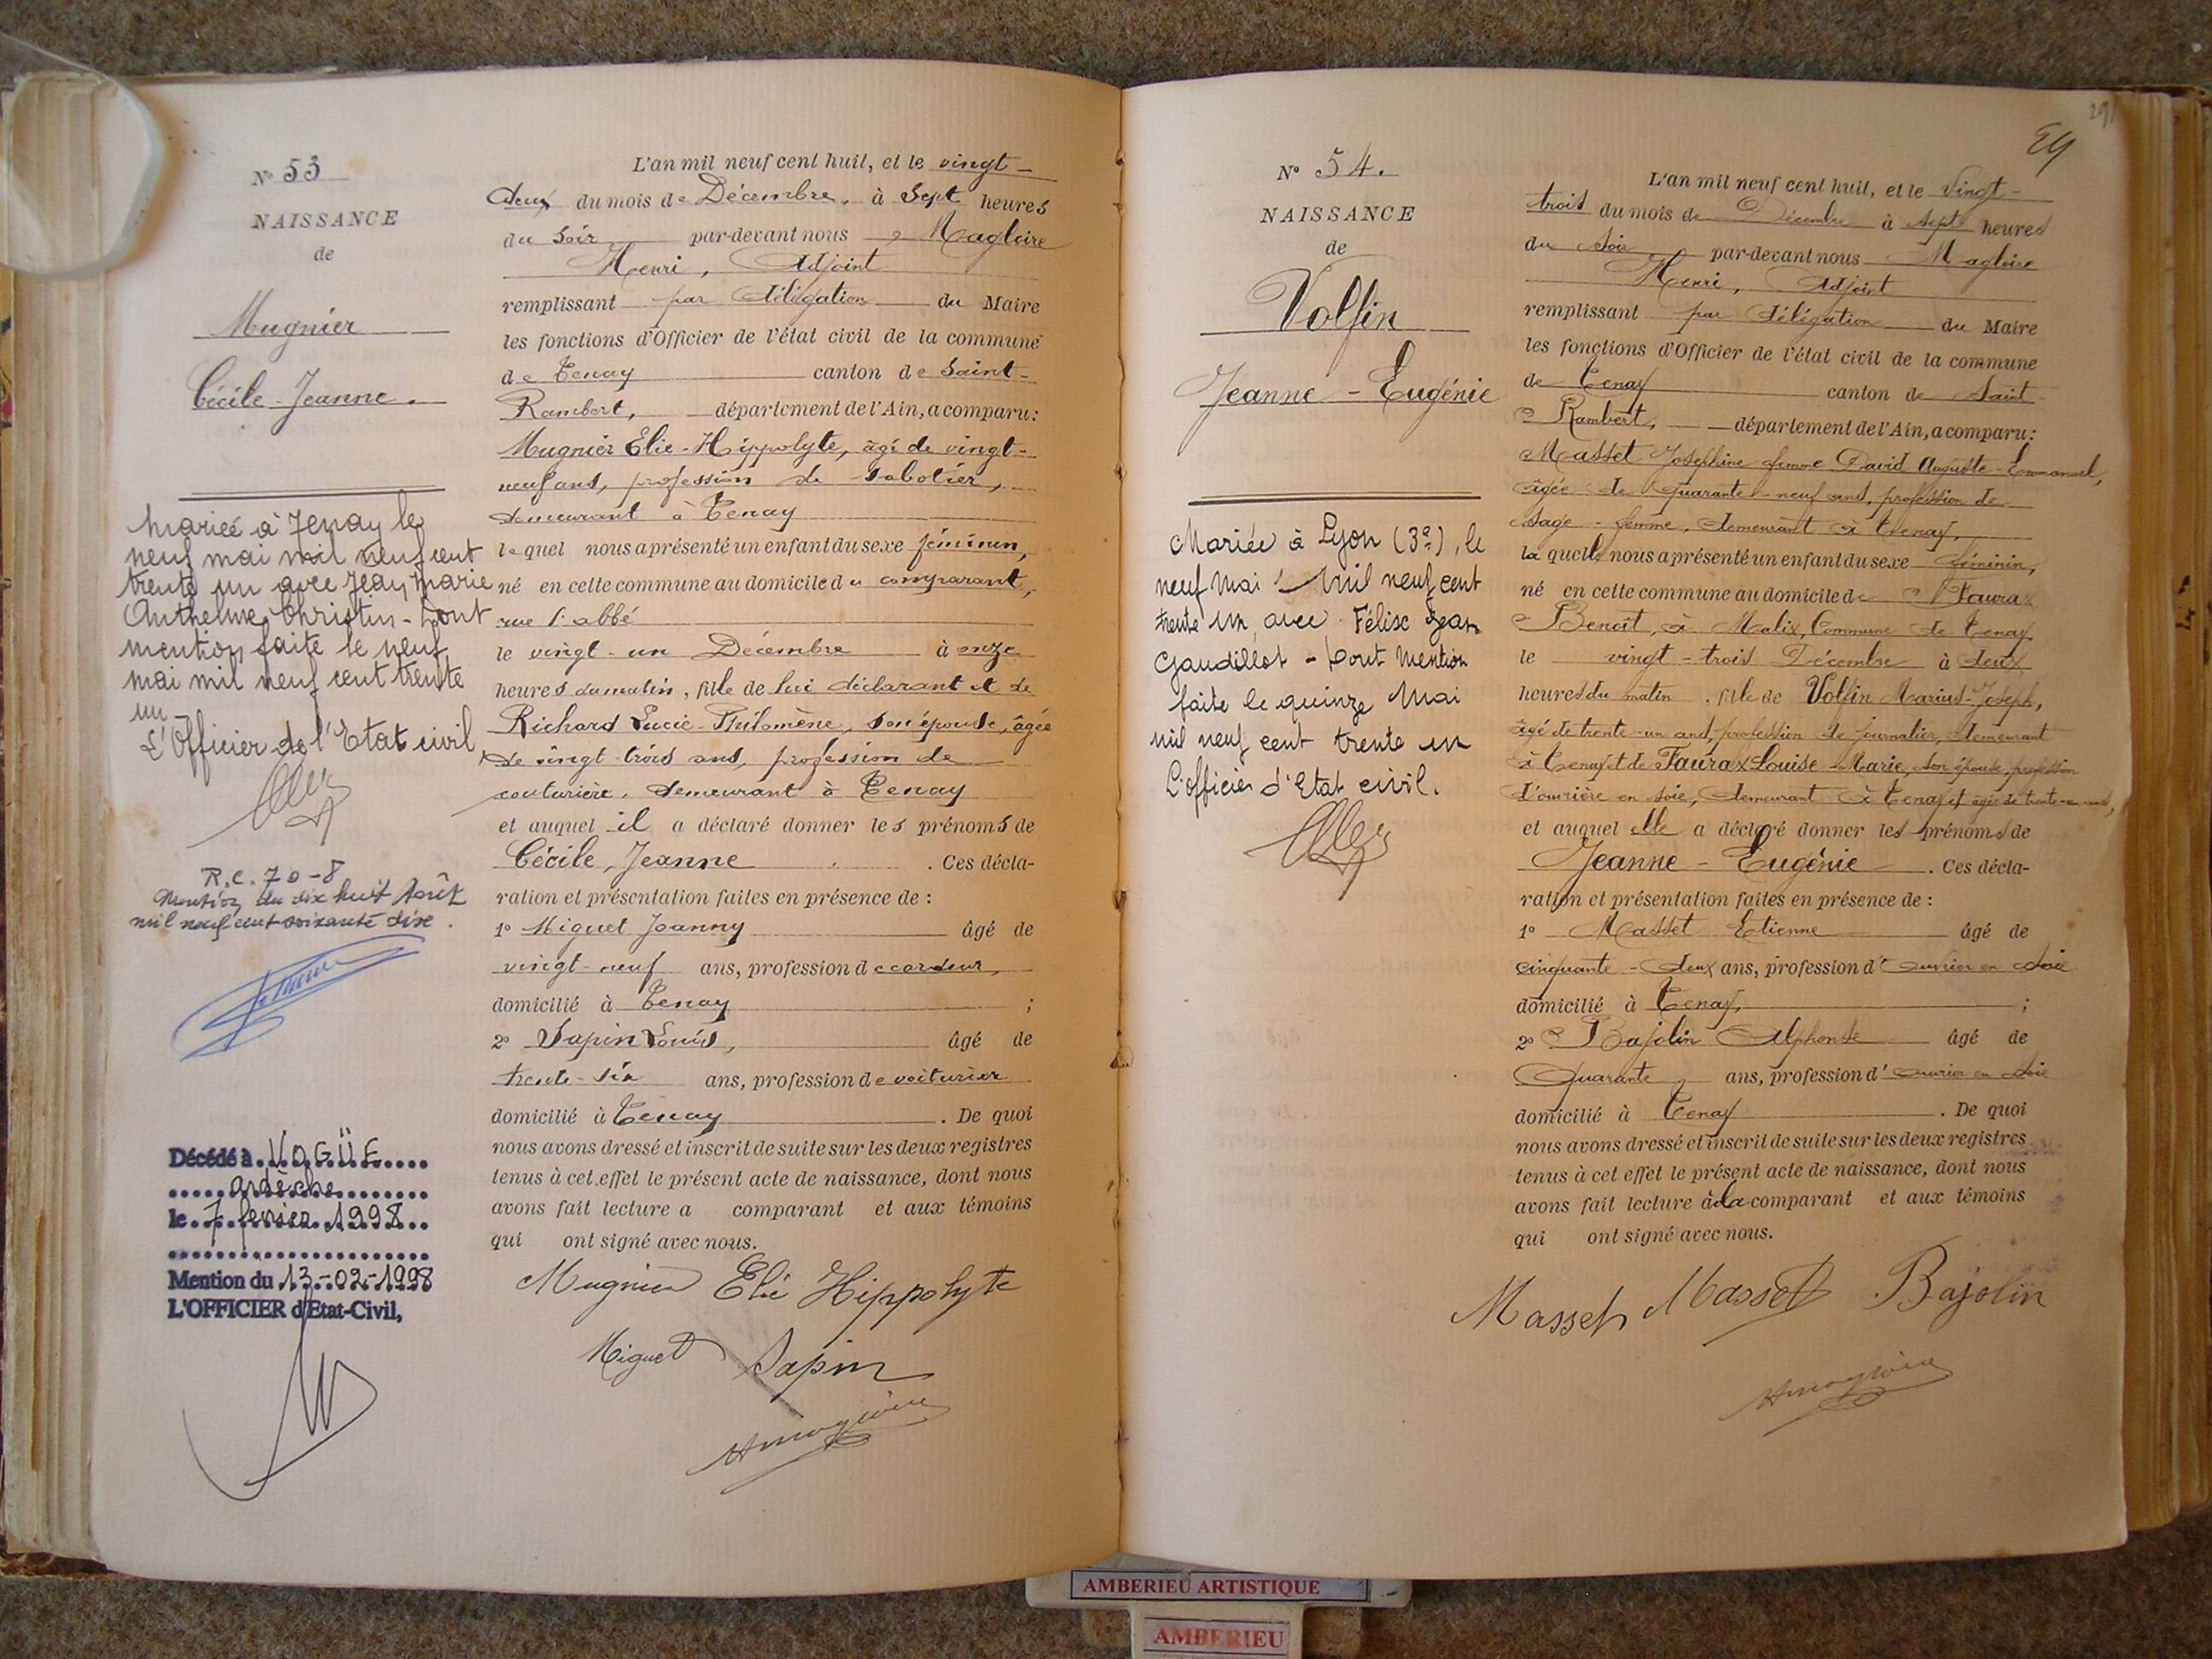 N° 53
NAISSANCE
de
Mugnier
Cécile-Jeanne.
Mariée à Tenay le
neuf mai mil neuf cent
trente un avec Jean Marie
Anthelme Christin - Dont
mention faite le neuf
mai mil neuf cent trente
un -
L'Officier de l'Etat civil
R.C. 70-8
Mention du dix huit Août
mil neuf cent soixante dix.
Décédé à VOGÜE
Ardèche
le 7 février 1998
Mention du 13-02-1998
L'OFFICIER d'Etat-Civil,
L'an mil neuf cent huit, et le vingt-
deux du mois de Décembre, à Sept heures
du Soir par-devant nous Magloire
Henri, Adjoint
remplissant par délégation du Maire
les fonctions d'Officier de l'état civil de la commune
de Tenay canton de Saint-
Rambert, département de l'Ain, a comparu:
Mugnier Elie-Hippolyte, âgé de vingt-
neuf ans, profession de sabotier,
demeurant à Tenay
lequel nous a présenté un enfant du sexe féminin,
né en cette commune au domicile du comparant,
rue l'abbé
le vingt-un Décembre à onze
heures du matin, fille de lui déclarant et de
Richard Lucie-Philomène, son épouse, âgée
de vingt-trois ans, profession de
couturière, demeurant à Tenay
et auquel il a déclaré donner les prénoms de
Cécile, Jeanne . Ces décla-
ration et présentation faites en présence de :
1° Miguet Joanny âgé de
vingt-neuf ans, profession de cardeur,
domicilié à Tenay ;
2° Sapin Louis, âgé de
trente-six ans, profession de voiturier
domicilié à Tenay . De quoi
nous avons dressé et inscrit de suite sur les deux registres
tenus à cet effet le présent acte de naissance, dont nous
avons fait lecture a comparant et aux témoins
qui ont signé avec nous.
Mugnier Elie Hippolyte
Miguet Sapin
Hmagloire
29
N° 54.
NAISSANCE
de
Volfin
Jeanne-Eugénie
Mariée à Lyon (3e), le
neuf Mai mil neuf cent
trente un avec Félix Jean
Gaudillot - Dont Mention
faite le quinze Mai
mil neuf cent trente un
L'officier d'Etat civil.
L'an mil neuf cent huit, et le Vingt-
trois du mois de Décembre à sept heures
du soir par-devant nous Magloire
Henri, Adjoint
remplissant par délégation du Maire
les fonctions d'Officier de l'état civil de la commune
de Tenay canton de Saint
Rambert, département de l'Ain, a comparu:
Masset Joséphine femme David Auguste-Emmanuel,
âgée de quarante-neuf ans, profession de
sage-femme, demeurant à Tenay,
laquelle nous a présenté un enfant du sexe féminin,
né en cette commune au domicile de Faurax
Benoit, à Malix, Commune de Tenay
le vingt-trois Décembre à deux
heures du matin, fille de Volfin Marius-Joseph,
âgé de trente-un ans, profession de journalier, demeurant
à Tenay et de Faurax Louise-Marie, son épouse, profession
d'ouvrière en soie, demeurant à Tenay et âgée de
et auquel elle a déclaré donner les prénoms de
Jeanne-Eugénie . Ces décla-
ration et présentation faites en présence de :
1° Masset Etienne âgé de
cinquante-deux ans, profession d'ouvrier en soie
domicilié à Tenay, ;
2° Bajolin Alphonse âgé de
Quarante ans, profession d'ouvrier en soie
domicilié à Tenay . De quoi
nous avons dressé et inscrit de suite sur les deux registres
tenus à cet effet le présent acte de naissance, dont nous
avons fait lecture à la comparant et aux témoins
qui ont signé avec nous.
Masset Masset Bajolin
Hmagloire
AMBERIEU ARTISTIQUE
AMBERIEU